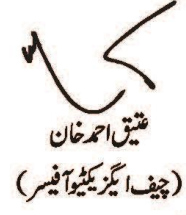 عتیق احمد خان
(چیف ایگزیکٹیو آفیسر)